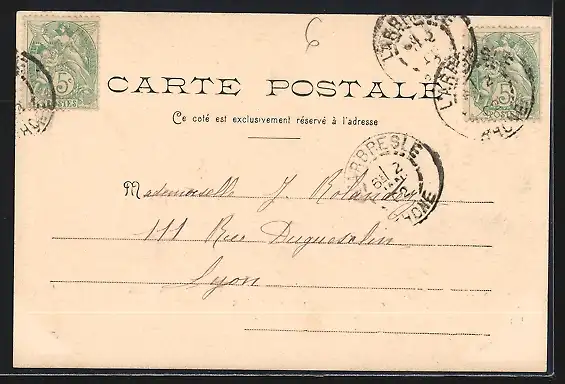 6
5c
POSTES
5
POSTES
L'ARBRESLE
CARTE POSTALE
Ce coté est exclusivement réservé à l'adresse
L'ARBRESLE
RHONE
Mademoiselle J. Rolandey
111 Rue Duguesclin
Lyon